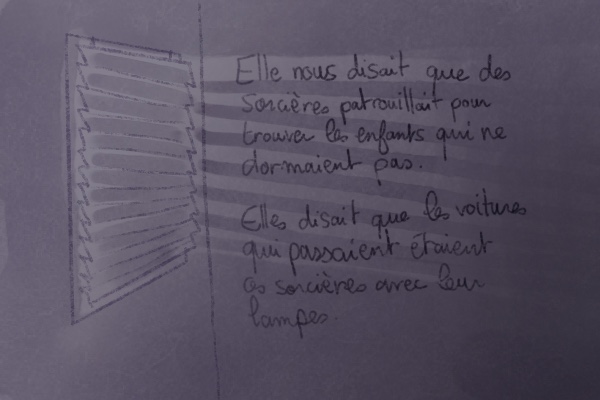 Elle nous disait que des
sorcières patrouillait pour
trouver les enfants qui ne
dormaient pas.
Elles disait que les voitures
qui passaient étaient
ces sorcières avec leur
lampes.